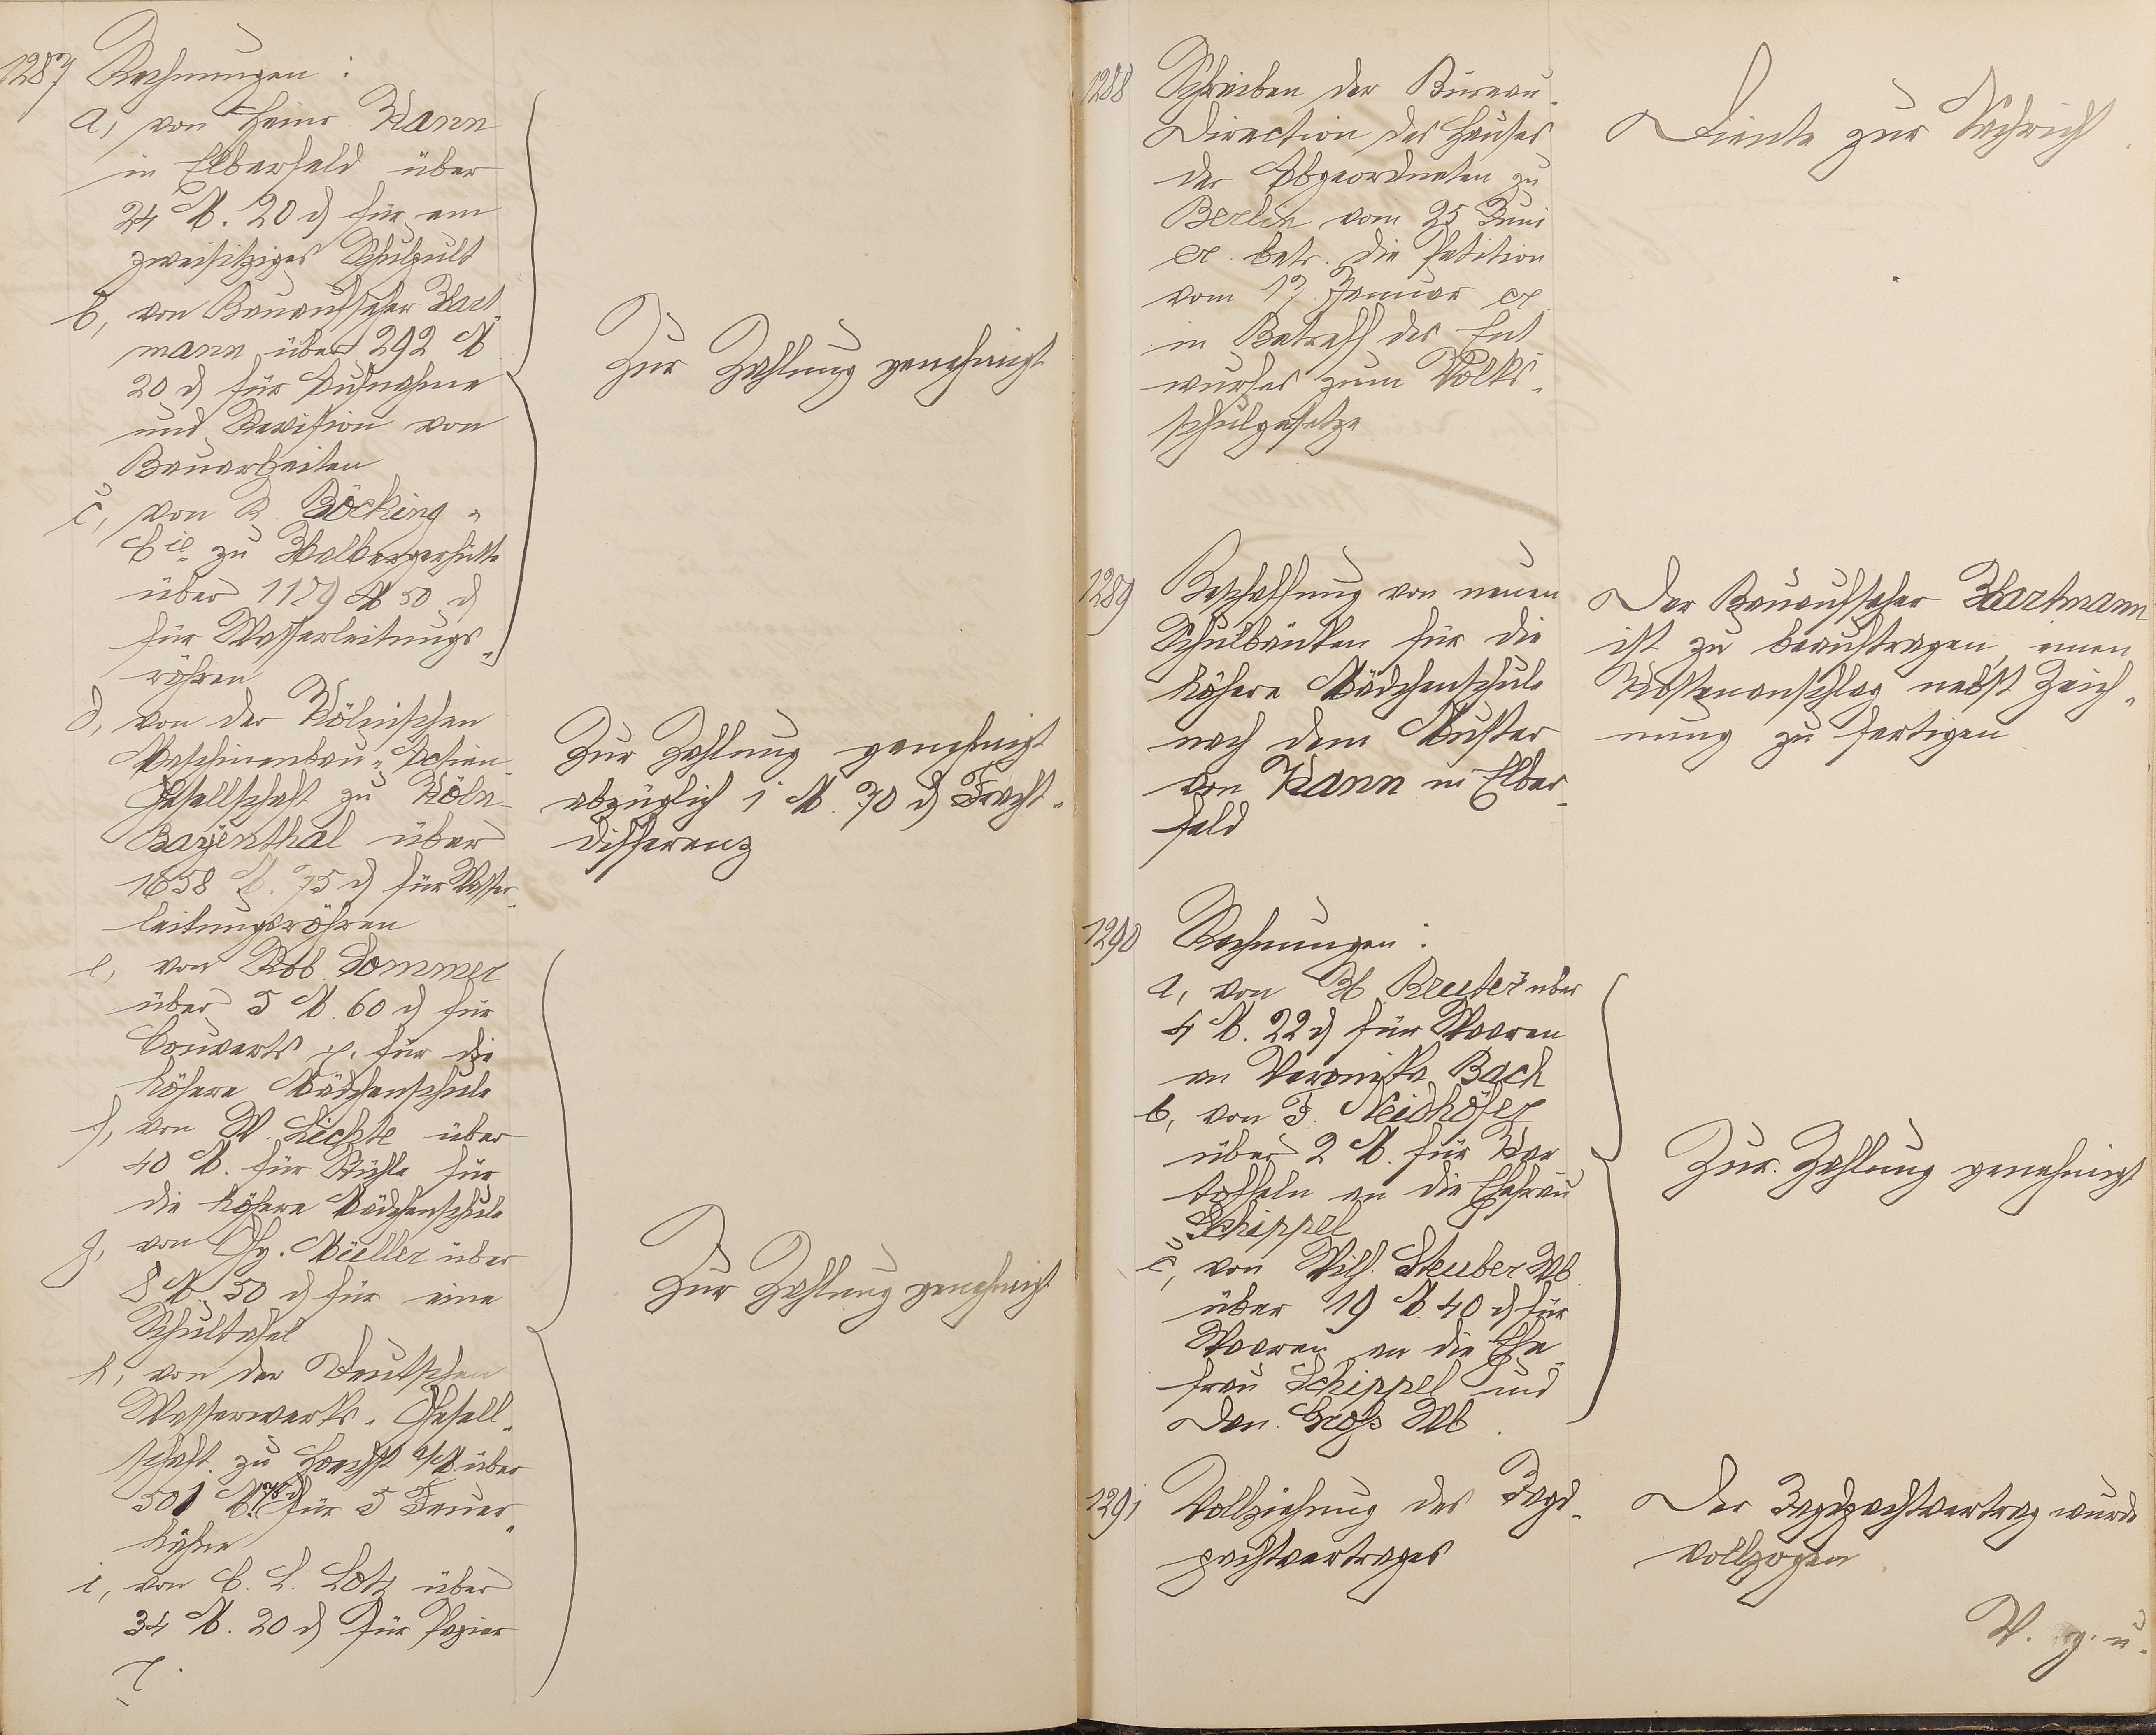 1287 Rechnungen:
a, von Heinr. Kann
in Elberfeld über
24 M. 20 d für ein
zweisitziges Schulpult
b, von Bauaufseher Hart-
mann über 292 M
20 d für Aufnahme
und Revision von
Bauarbeiten
c, von R. Böcking &
Cie zu Halbergerhütte
über 1129 M 50 d
für Wasserleitungs-
röhren
Zur Zahlung genehmigt
d, von der Kölnischen
Maschinenbau-Actien-
Gesellschaft zu Köln-
Bayenthal über
1658 M. 75 d für Wasser-
leitungsröhren
Zur Zahlung genehmigt
abzüglich 1 M. 70 d Fracht-
differenz
e, von Rob. Sommer
über 5 M. 60 d für
Couverts p. für die
höhere Mädchenschule
f, von W. Lichte über
40 M. für Stühle für
die höhere Mädchenschule
g, von Chr. Müller über
8 M. 50 d für eine
Schultafel
h, von der Deutschen
Wasserwerks-Gesell-
schaft zu Hoechst a/M über
501 M. 75 d für 5 Feuer-
hähne
i, von C. L. Lotz über
34 M. 20 d für Papier
p.
Zur Zahlung genehmigt
1288 Schreiben der Büreau-
Direction des Hauses
der Abgeordneten zu
Berlin vom 25 Juni
cr. betr. die Petition
vom 17 Januar cr.
in Betreff des Ent
wurfes zum Volks-
schulgesetze
Diente zur Nachricht
1289 Beschaffung von neuen
Schulbänken für die
höhere Mädchenschule
nach dem Muster
von Kann in Elber-
feld
Der Bauaufseher Hartmann
ist zu beauftragen, einen
Kostenanschlag nebst Zeich-
nung zu fertigen
1290 Rechnungen:
a, von H. Reuter über
4 M. 22 d für Waaren
an Veronika Bach
b, von F. Neidhöfer
über 2 M. für Kar
toffeln an die Ehefrau
Schippel
c, von Wilh. Steuber Wb
über 19 M. 40 d für
Waaren an die Ehe-
frau Schippel und
Dan. Groß Wb.
Zur Zahlung genehmigt
1291 Vollziehung des Jagd-
pachtvertrages
Der Jagdpachtvertrag wurde
vollzogen.
V. g. u.